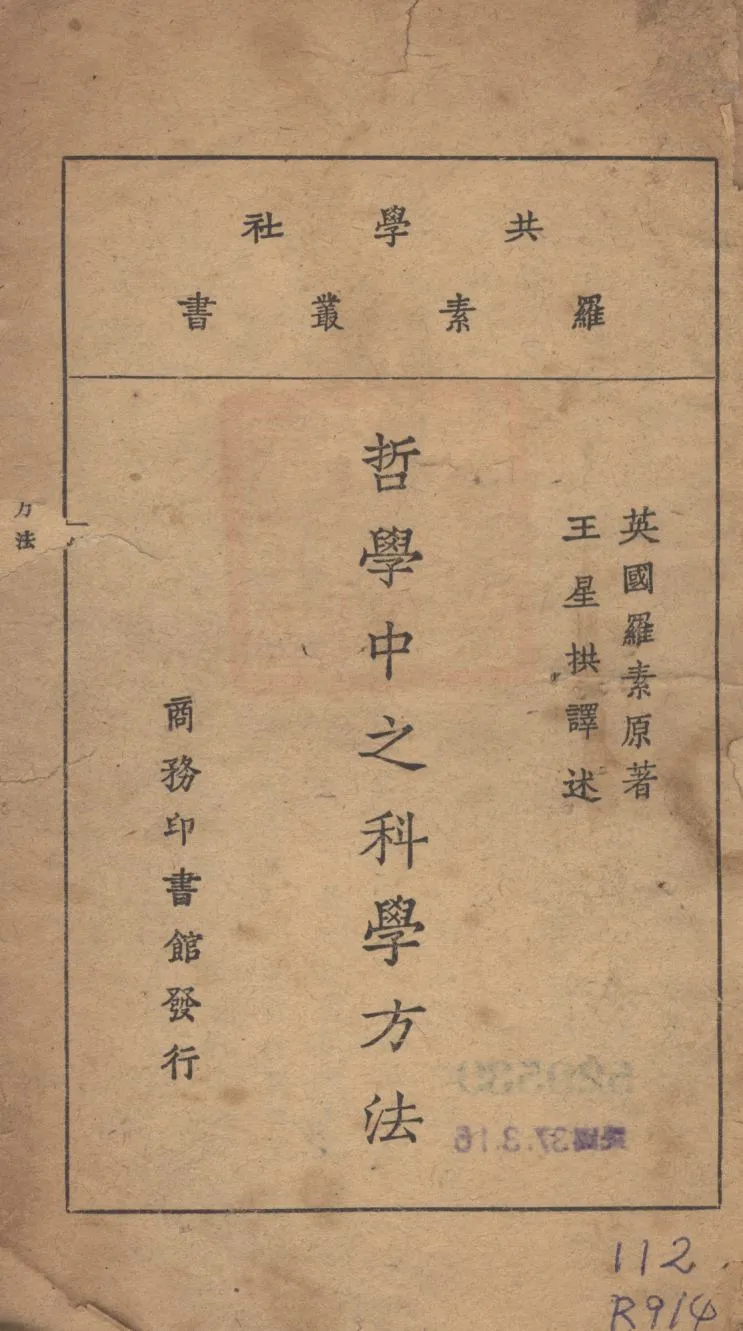 共學社
羅素叢書
英國羅素原著
王星拱譯述
哲學中之科學方法
商務印書館發行
方法
民國37.3.16
112
R914